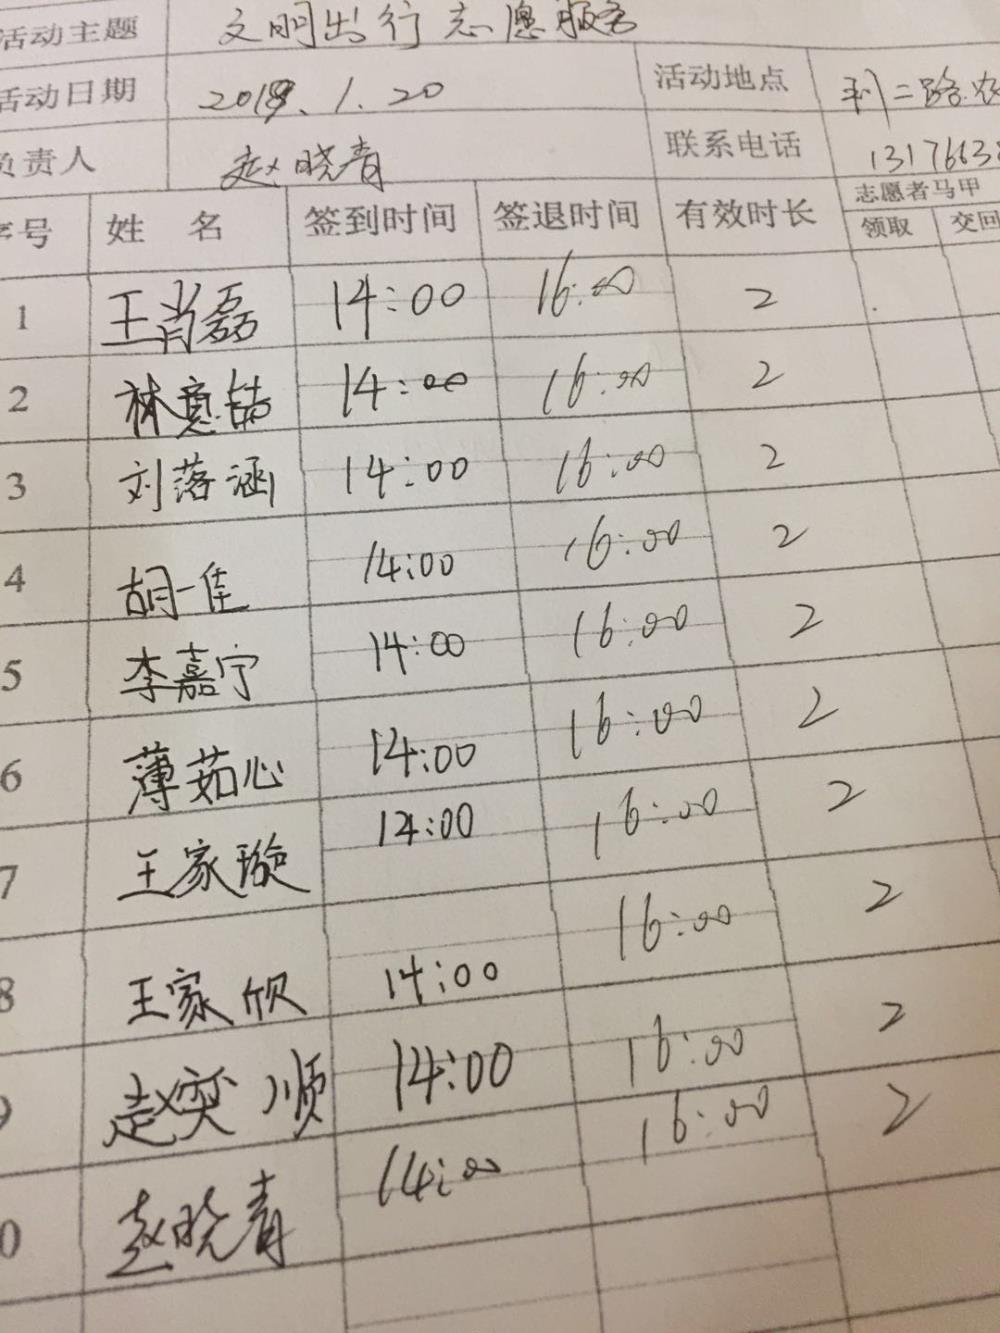 活动主题 文明出行志愿服务
活动日期 2019.1.20 活动地点 利二路农
负责人 赵晓青 联系电话 1317663
序号 姓 名 签到时间 签退时间 有效时长 志愿者马甲
领取 交回
1 王肖磊 14:00 16:00 2
2 林 14:00 16:00 2
3 刘落涵 14:00 16:00 2
4 胡一佳 14:00 16:00 2
5 李嘉宁 14:00 16:00 2
6 薄茹心 14:00 16:00 2
7 王家璇 14:00 16:00 2
8 王家欣 14:00 16:00 2
9 赵奕顺 14:00 16:00 2
0 赵晓青 14:00 16:00 2